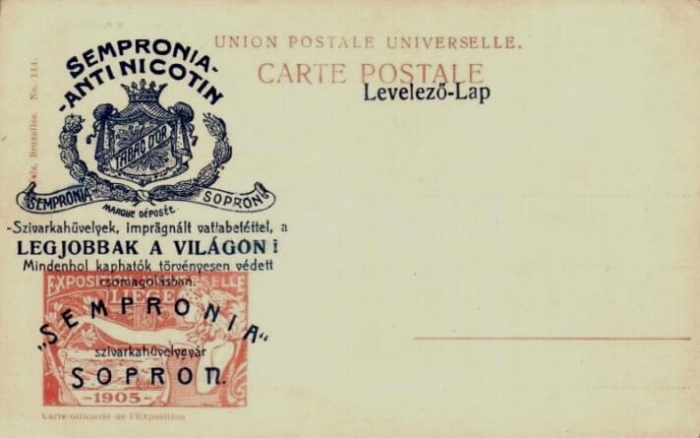 UNION POSTALE UNIVERSELLE.
CARTE POSTALE
Levelező-Lap
SEMPRONIA-
-ANTINICOTIN
TABAC D'OR
SEMPRONIA SOPRON
MARQUE DÉPOSÉE
-Szivarkahüvelyek, imprägnált vattabetéttel, a
LEGJOBBAK A VILÁGON!
Mindenhol kaphatók törvényesen védett
csomagolásban.
EXPOSITION UNIVERSELLE
LIÈGE
„SEMPRONIA“
szivarkahüvelygyár
SOPRON.
-1905-
Carte officielle de l'Exposition
Bruxelles. No. 114.